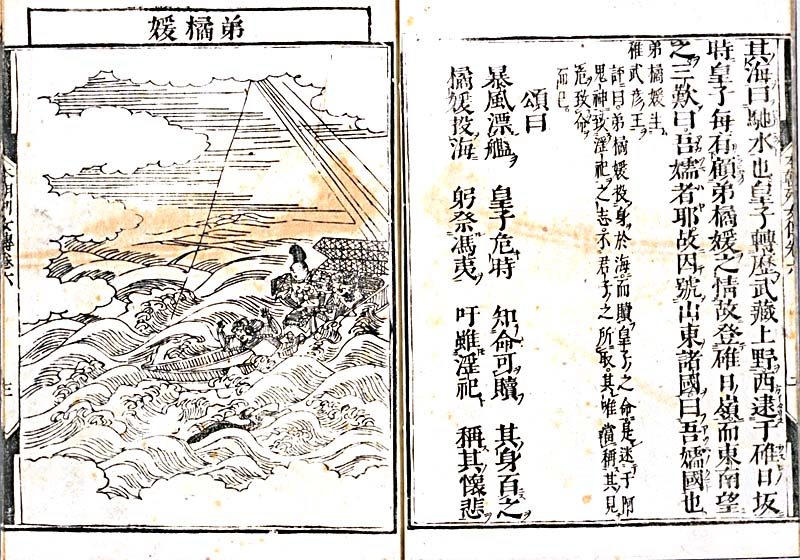 其海曰馳水也皇子轉歷武藏上野西逮于碓日坂
時皇子毎有顧弟橘媛之情故登碓日嶺而東南望
之三歎曰吾嬬者耶故因號山東諸國曰吾嬬國也
弟橘媛生
稚武彦王
評曰。弟橘媛投身於海而贖皇子之命是迷于阿
鬼神 淫祀之志。不君子之所取。其唯當稱其見
危致命
而已。
頌曰
暴風漂艦 皇子危時 知命可贖 其身百之
橘媛投海 躬祭馮夷 吁雖淫祀 稱其懷悲
弟橘媛
本朝列女傳卷六
三